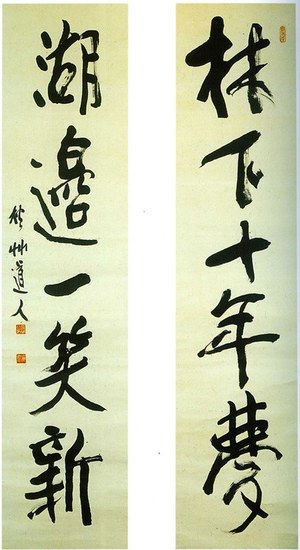 林下十年夢
湖邊一笑新
秋艸道人